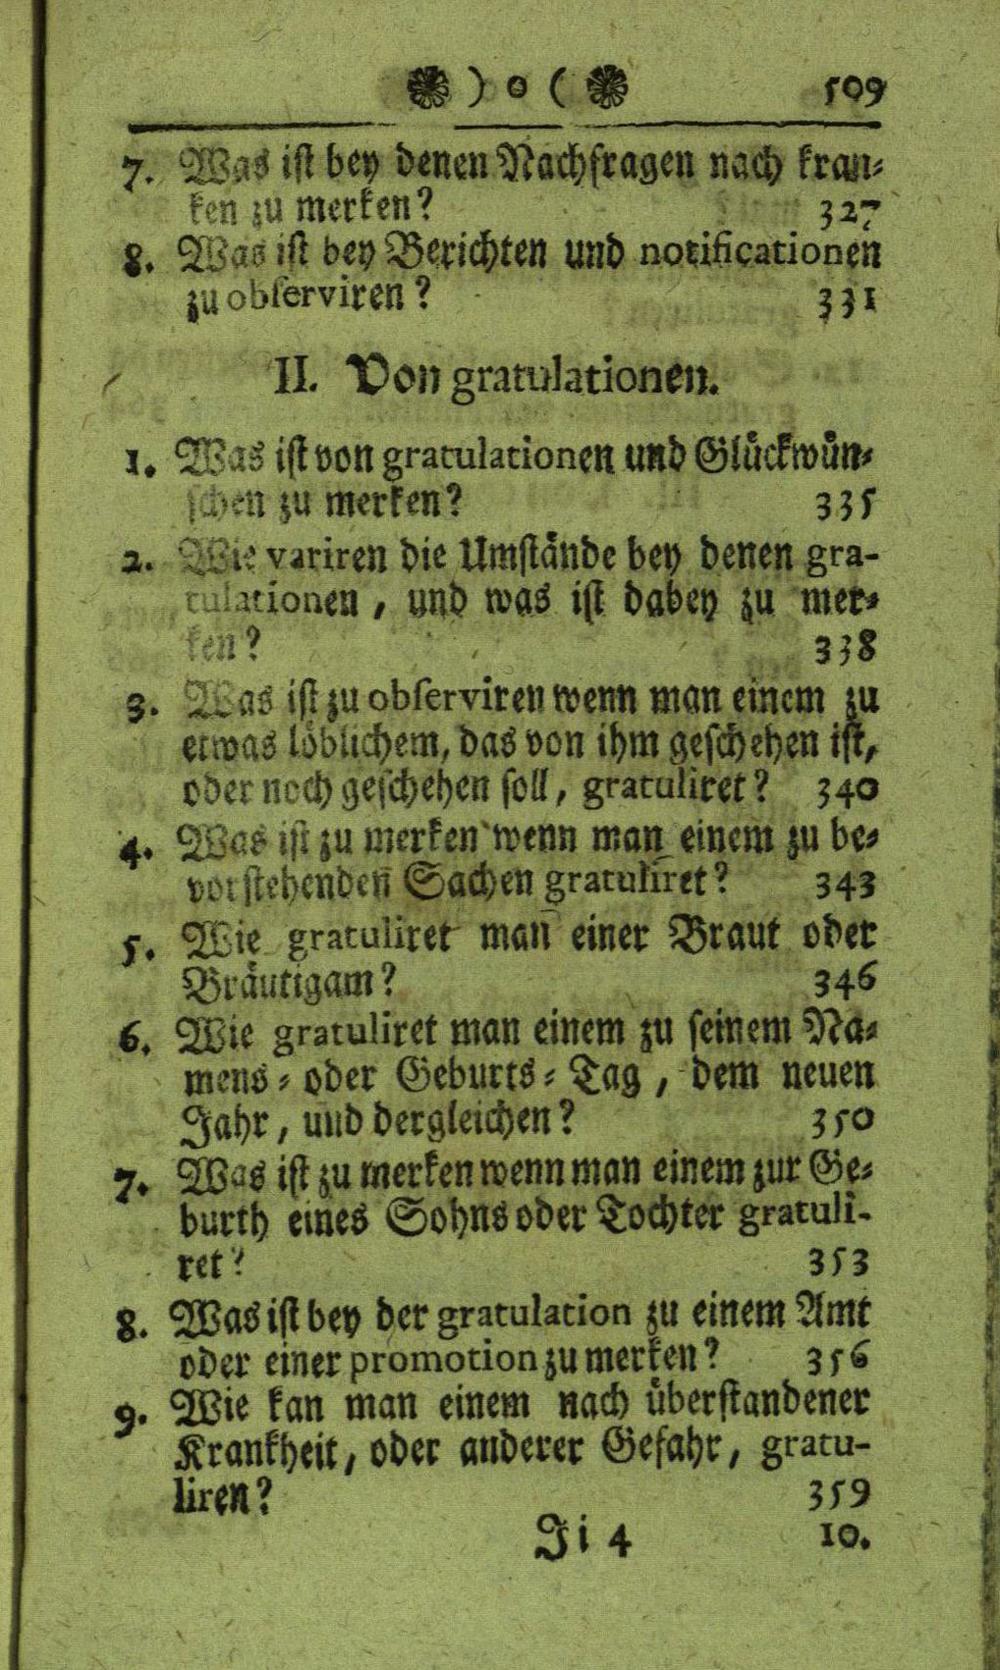 ) o ( 509
7. Was ist bey denen Nachfragen nach kran-
ken zu merken? 327
8. Was ist bey Berichten und notificationen
zu observiren? 331
II. Von gratulationen.
1. Was ist von gratulationen und Glückwün-
schen zu merken? 335
2. Wie variren die Umstände bey denen gra-
tulationen, und was ist dabey zu mer-
ken? 338
3. Was ist zu observiren wenn man einem zu
etwas löblichem, das von ihm geschehen ist,
oder noch geschehen soll, gratuliret? 340
4. Was ist zu merken wenn man einem zu be-
vorstehenden Sachen gratuliret? 343
5. Wie gratuliret man einer Braut oder
Bräutigam? 346
6. Wie gratuliret man einem zu seinem Na-
mens- oder Geburts-Tag, dem neuen
Jahr, und dergleichen? 350
7. Was ist zu merken wenn man einem zur Ge-
burth eines Sohns oder Tochter gratuli-
ret? 353
8. Was ist bey der gratulation zu einem Amt
oder einer promotion zu merken? 356
9. Wie kan man einem nach überstandener
Krankheit, oder anderer Gefahr, gratu-
liren? 359
Ji 4 10.